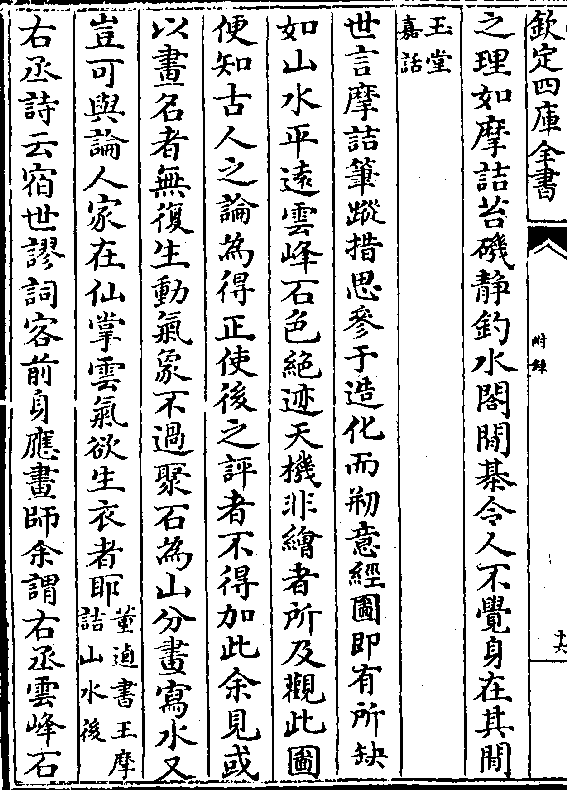 欽定四庫全書
附錄
十六
之理如摩詰苔磯靜釣水閣閒棊令人不覺身在其間
玉堂
嘉話
世言摩詰筆蹤措思參于造化而刱意經圖即有所缺
如山水平遠雲峰石色絕迹天機非繪者所及觀此圖
便知古人之論為得正使後之評者不得加此余見或
以畫名者無復生動氣象不過聚石為山分畫寫水又
豈可與論人家在仙掌雲氣欲生衣者耶
董逌書王摩
詰山水後
右丞詩云宿世謬詞客前身應畫師余謂右丞雲峰石